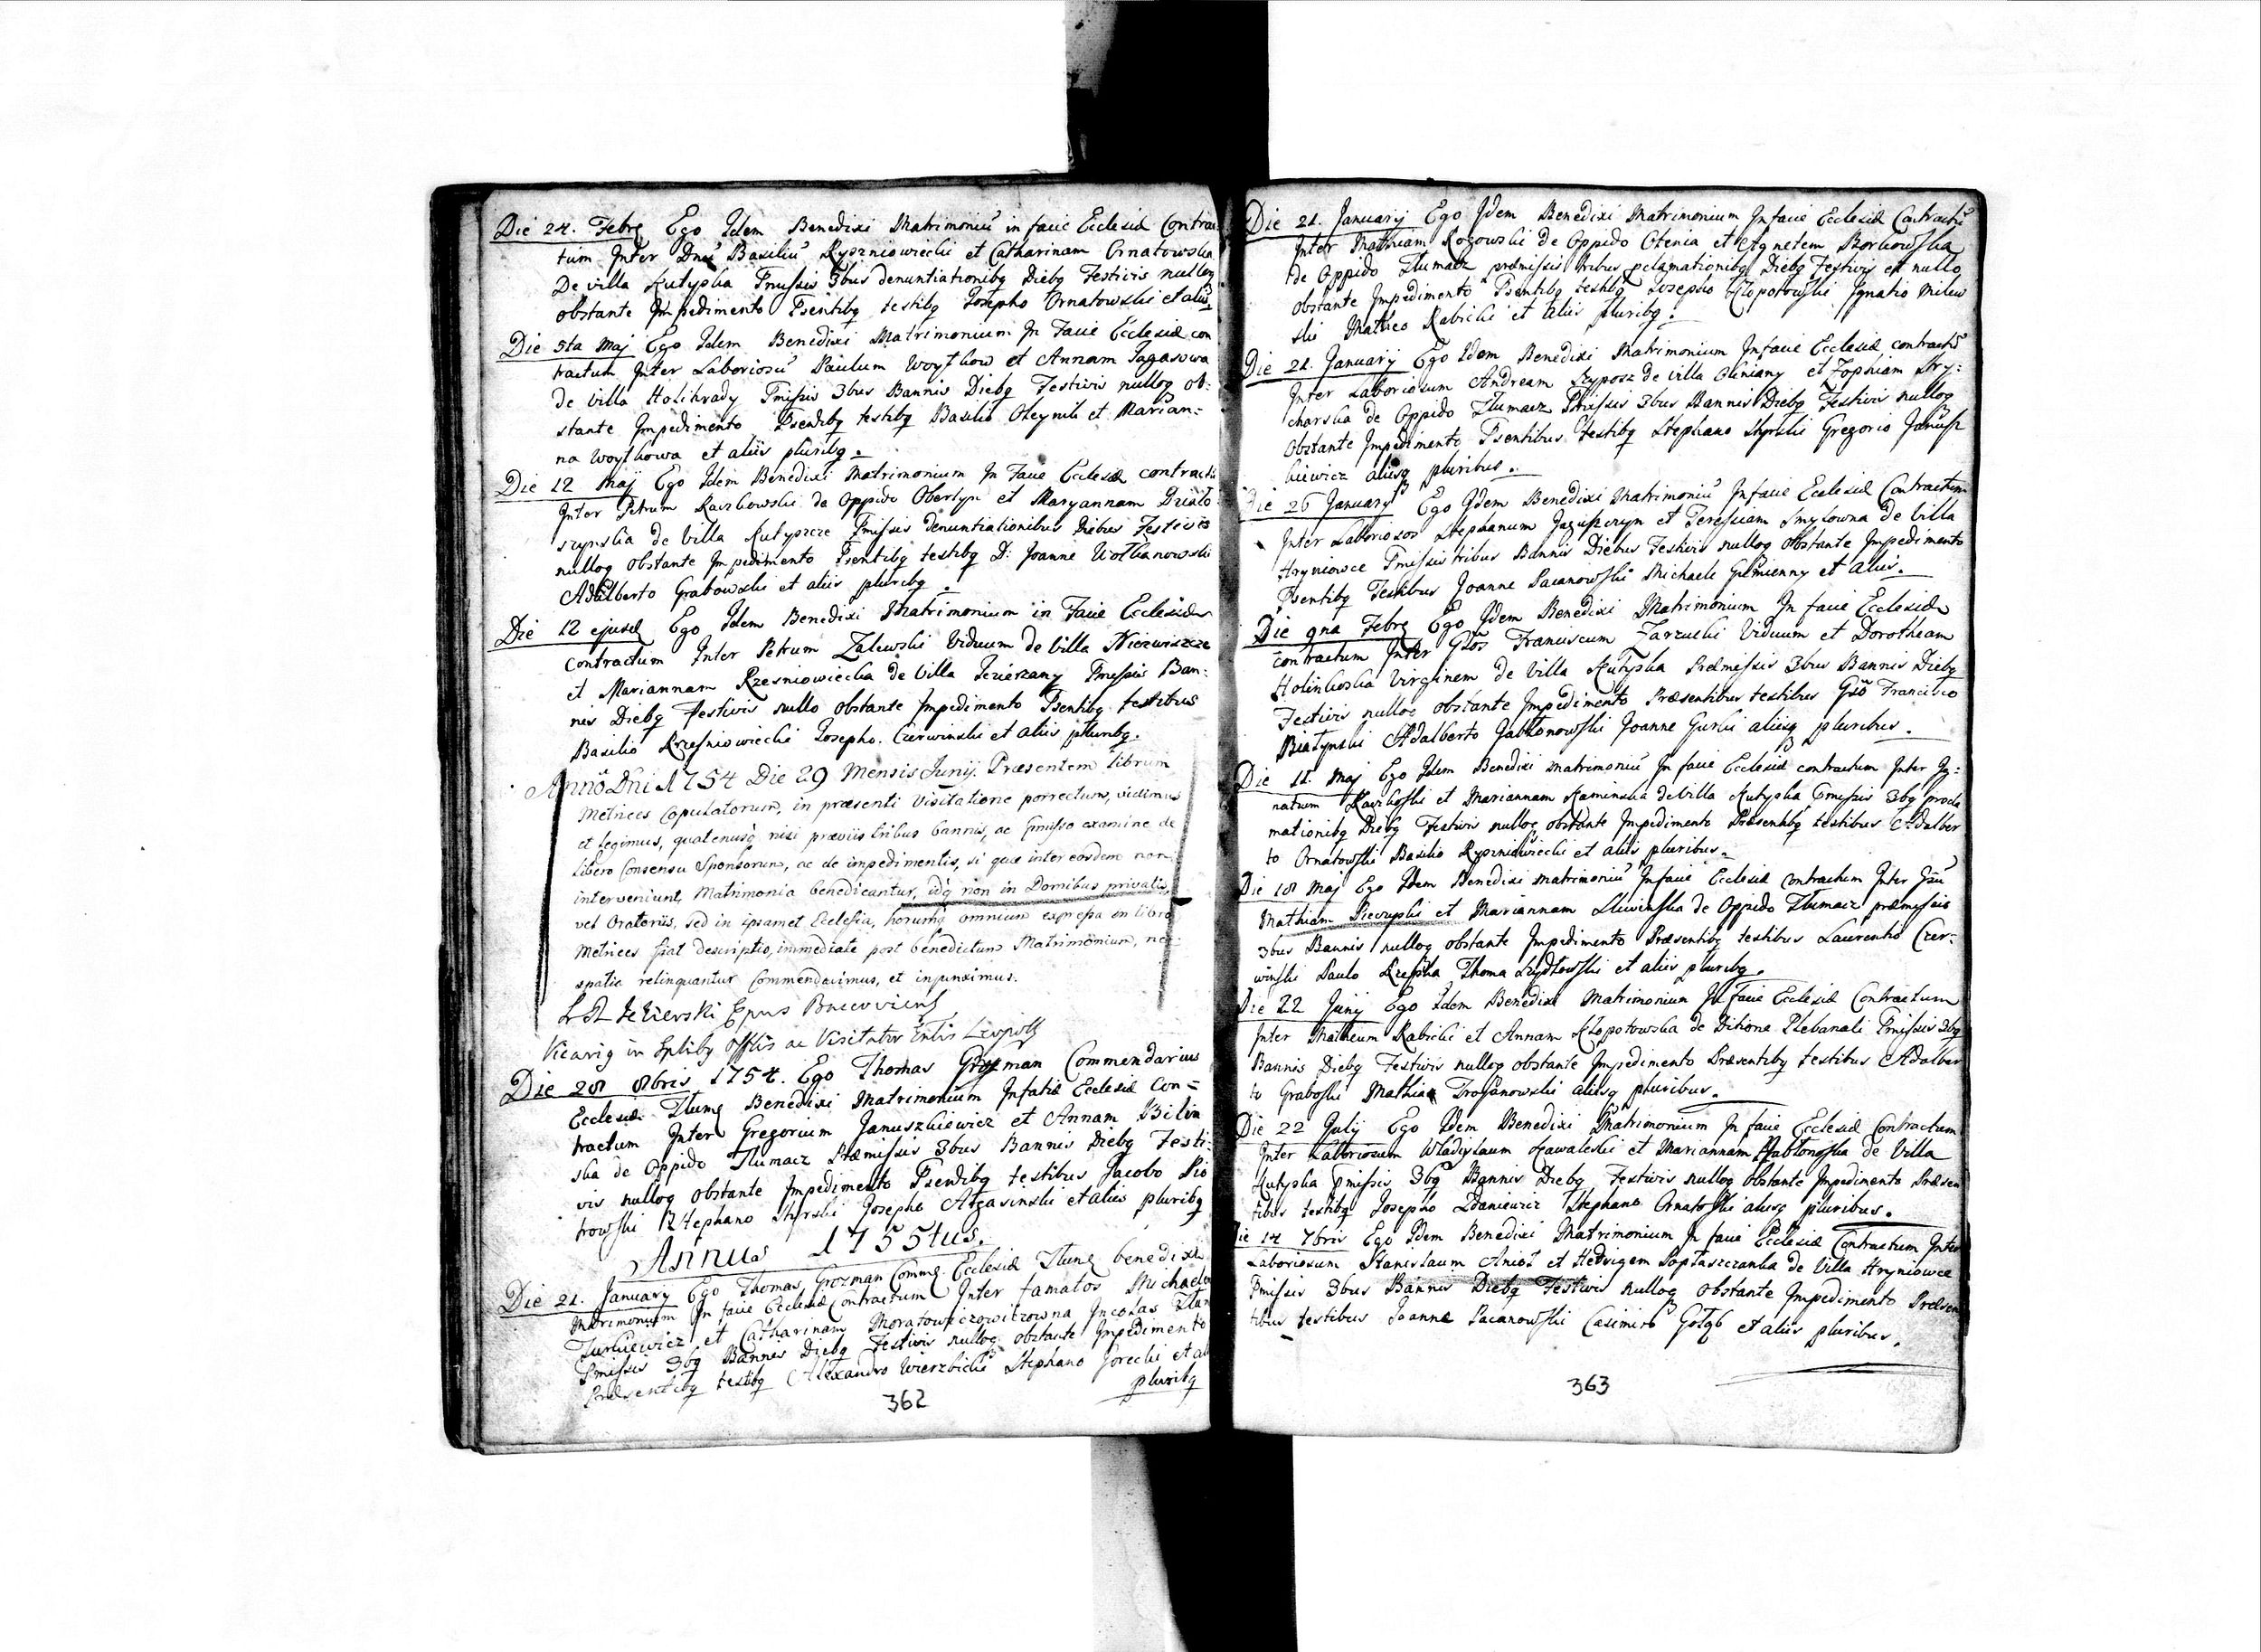 Die 24. Febr Ego Idem Benedixi Matrimoniu in facie Ecclesiæ Contrac
tum Inter Dnu Basiliu Ryszniowiecki et Catharinam Ornatowska
De villa Kutyska Pmissis 3bus denuntiationibq Diebq Festivis nulloq
obstante Impedimento Psentibq testibq Josepho Ornatowski et aliis
Die 5ta Maj Ego Idem Benedixi Matrimonium In Facie Ecclesiæ con
tractum Inter Laboriosu Paulum Woytkow et Annam Jagasowa
de villa Holihrady Pmissis 3bus Bannis Diebq Festivis nulloq ob:
stante Impedimento Psentibq testibq Basilio Oleynik et Marian=
na Woytkowa et aliis pluribq.
Die 12 Maij Ego Idem Benedixi Matrimonium In Facie Ecclesiæ contractu
Inter Petrum Raczkowski de Oppido Obertyn et Maryannam Działo
szynska de Villa Kutyszcze Pmissis denuntiationibus Diebus Festivis
nulloq obstante Impedimento Psentibq testibq D: Joanne Wolianowski
Adalberto Grabowski et aliis pluribq
Die 12 ejusd Ego Idem Benedixi Matrimonium in Facie Ecclesiæ
Contractum Inter Petrum Zalewski Viduum de Villa Niezwiszcze
et Mariannam Rzesniowiecka de Villa Jezierzany Pmissis Ban:
nis Diebq Festivis nullo obstante Impedimento Psentibq testibus
Basilio Rzesniowiecki Josepho Czerwinski et aliis pluribq.
Anno Dni 1754 Die 29 Mensis Junij. Præsentem librum
Metrices Copulatorum, in præsenti Visitatione porrectum, vidimus
et legimus, quatenusq nisi præviis tribus bannis, ac pmisso examine de
libero Consensu Sponsorum, ac de impedimentis, si quæ inter eosdem non
interveniunt, Matrimonia benedicantur, idq non in Domibus privatis,
vel Oratoriis, sed in ipsamet Ecclesia, horumq omnium expressa in libro
Metrices fiat descriptio, immediate post benedictum Matrimonium, ne
spatia relinquantur Commendavimus, et injunximus.
Epus
Vicariq in Sptlibq Offlis ac Visitator Gnlis Leopol
Die 28 8bris 1754. Ego Thomas Grozman Commendarius
Ecclesiæ Tlumq Benedixi Matrimonium Infatiæ Ecclesiæ Con=
tractum Inter Gregorium Januszkiewicz et Annam Bilin
ska de Oppido Tlumacz Præmissis 3bus Bannis Diebq Festi:
vis nulloq obstante Impedimento Psentibq testibus Jacobo Pio
trowski Stephano Skyrski Josepho et aliis pluribq
Annus 1755tus.
Die 21. January Ego Thomas Grozman Comm. Ecclesiæ Tlumq benedixi
Matrimonium In facie Ecclesiæ Contractum Inter famatos Michaele
Turkiewicz et Catharinam Incolas Tlum
Pmissis 3bq Bannis Diebq Festivis nulloq obstante Impedimento
Præsentibq testibq Alexandro Wierzbicki Stephano Gorecki et al
pluribq
362
Die 21. Januarij Ego Idem Benedixi Matrimonium Infacie Ecclesiæ Contractu
Inter Mathiam Rogowski de Oppido Otenia et Agnetem Borkowska
de Oppido Tlumacz præmissis tribus pclamationibq Diebq Festivis et nullo
obstante Impedimento Psentibq testibq Josepho Kłopotowski Ignatio Milew
ski Matheo Rabicki et aliis pluribq.
Die 21. Januarij Ego Idem Benedixi Matrimonium Infacie Ecclesiæ contractu
Inter Laboriosum Andream Szyposz de villa Okniany et Zophiam Kry:
charska de Oppido Tlumacz Pmissis 3bus Bannis Diebq Festivis nulloq
Obstante Impedimento Psentibus testibq Stephano Skyrski Gregorio Janusz
kiewicz aliisq pluribus.
Die 26 January Ego Idem Benedixi Matrimoniu Infacie Ecclesiæ Contractum
Inter Laboriosos Stephanum Jaguszczyn et Teressiam Smytowna de Villa
Hryniowce Pmissis tribus Bannis Diebus Festivis nulloq obstante Impedimento
Psentibq Testibus Joanne Pacanowski Michaele Gumienny et aliis.
Die 9na Febr Ego Idem Benedixi Matrimonium In facie Ecclesiæ
contractum Inter Gsos Franciscum Zarzucki Viduum et Dorotheam
Holinkoska Virginem de Villa Kutyska Præmissis 3bus Bannis Diebq
Festivis nulloq obstante Impedimento Præsentibus testibus Gso Francisco
Białynski Adalberto Jabłonowski Joanne Gurki aliisq pluribus.
Die 11. Maj Ego Idem Benedixi Matrimoniu In facie Ecclesiæ contractum Inter Ig:
natium Raczkoski et Mariannam Kaminska de Villa Kutyska Pmissis 3bq procla
mationibq Diebq Festivis nulloq obstante Impedimento Præsentibq testibus Adalber
to Ornatowski Basilio Ryszniowiecki et aliis pluribus.
Die 18 Maj Ego Idem Benedixi matrimoniu Infacie Ecclesiæ Contractum Inter Gsu
Mathiam Pieczyski et Mariannam Sliwinska de Oppido Tlumacz præmissis
3bus Bannis nulloq obstante Impedimento Præsentibq testibus Laurentio Czer:
winski Paulo Rzepka Thoma Szydłowski et aliis pluribq.
Die 22 Junij Ego Idem Benedixi Matrimonium In facie Ecclesiæ Contractum
Inter Matheum Rabicki et Annam Kłopotowska de Ditione Plebanali Pmissis 3bq
Bannis Diebq Festivis nulloq obstante Impedimento Præsentibq testibus Adalber
to Graboski Mathia Troyanowski aliisq pluribus.
Die 22 Julij Ego Idem Benedixi Matrimonium In facie Ecclesiæ Contractum
Inter Laboriosum Wladislaum Kawaleski et Mariannam Jabłonoska de Villa
Kutyska Pmissis 3bq Bannis Diebq Festivis nulloq obstante Impedimento Præsen
tibus testibq Josepho Zdaniewicz Stephano Ornatoski aliisq pluribus.
Die 14 7bris Ego Idem Benedixi Matrimonium In facie Ecclesiæ Contractum Inter
Laboriosum Stanislaum Anioł et Hedvigem Poptaszczanka de Villa Hryniowce
Pmissis 3bus Bannis Diebq Festivis nulloq obstante Impedimento Præsen
tibus testibus Joanne Pacanowski Casimiro Gołąb et aliis pluribus.
363